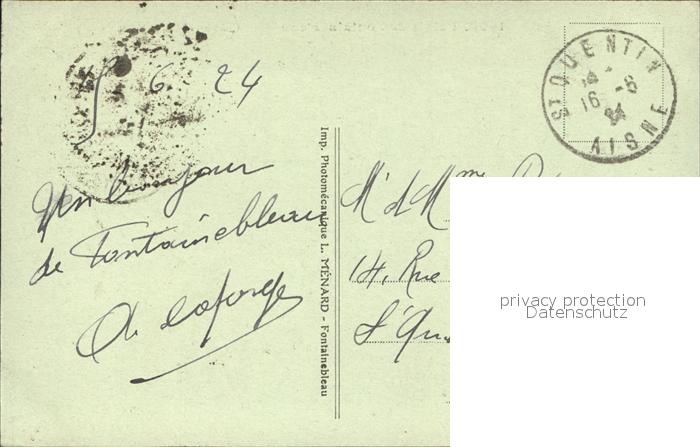 6 24
Un bonjour
de Fontainebleau
A. Laforge
Imp. Photomécanique L. MÉNARD - Fontainebleau
ST QUENTIN
16 -6
24
AISNE
Mr et Mme
14, Rue
St Qu
privacy protection
Datenschutz